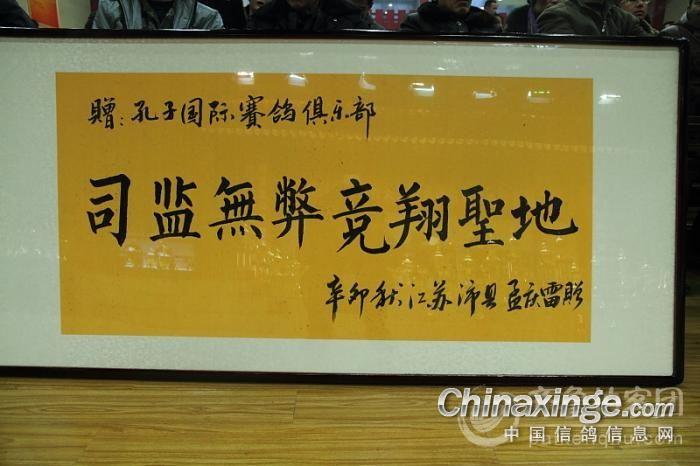 贈：孔子国际賽鸽俱乐部
司监無弊竞翔聖地
辛卯秋江苏沛县孟庆雷贈
Chinaxinge.com
中国信鸽信息网